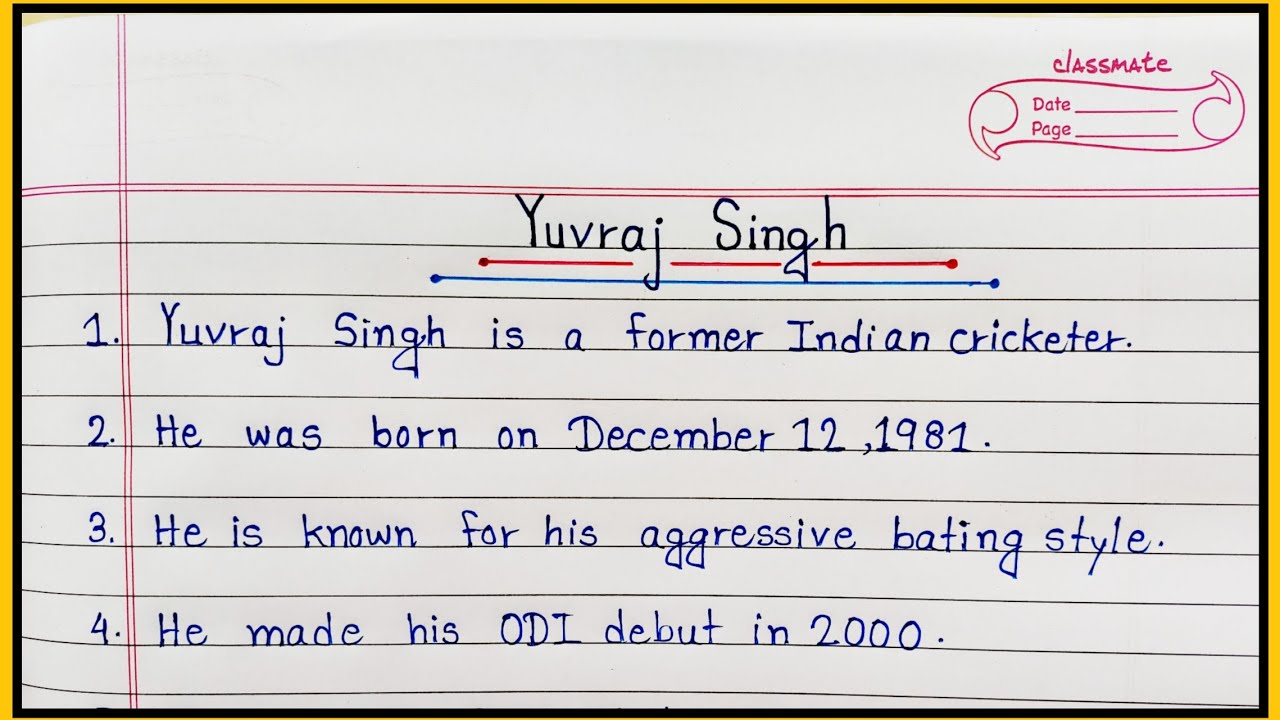 classmate
Date
Page
Yuvraj Singh
1. Yuvraj Singh is a former Indian cricketer.
2. He was born on December 12,1981.
3. He is known for his aggressive bating style.
4. He made his ODI debut in 2000.